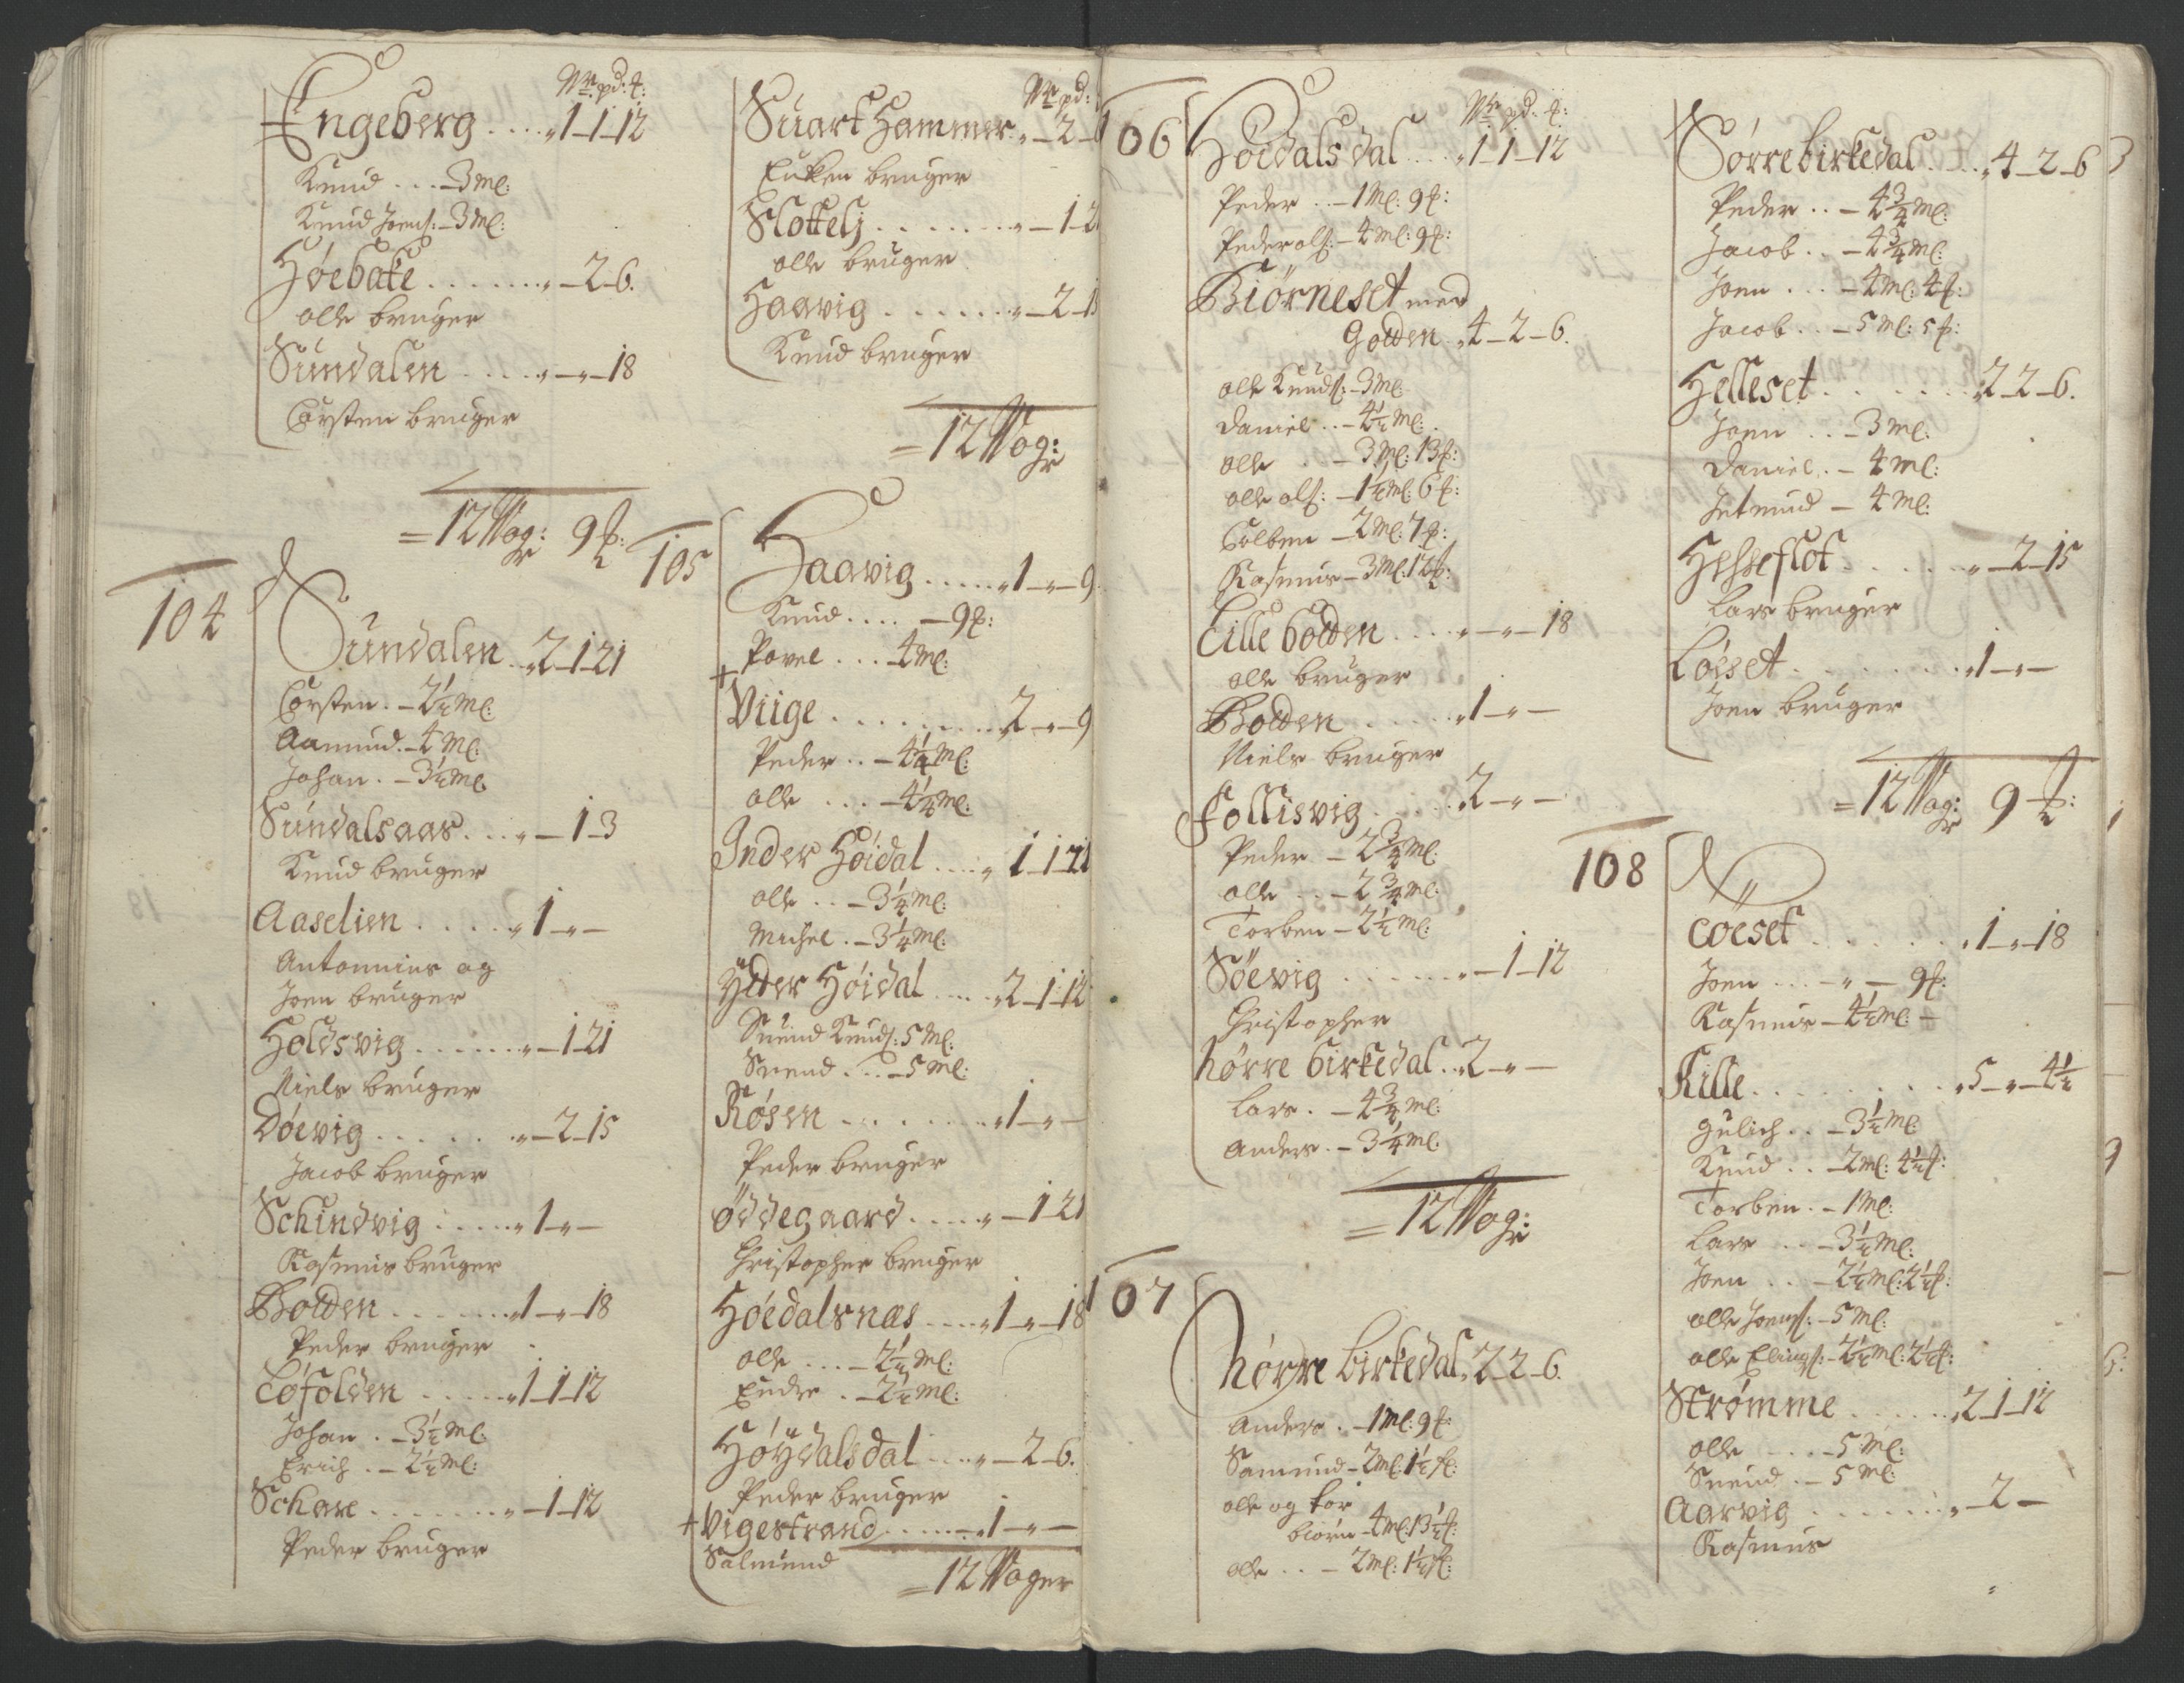 Wr: pd: t:
Engeberg .... „1_1_12
Knud ... _3 Ml:
Knud Joens: _3 Ml:
Høebake ....... „_2_6.
olle bruger
Sundalen ..... „_„_18
Torsten bruger
= 12 Wogr: 9 t:
104
Sundalen .. „2_1_21
Torsten . _2½ Ml:
Aamund. _4 Ml:
Johan . _3½ Ml:
Sundalsaas ... „_1_3
Knud bruger
Aaselien ..... „1_„_
Antonnius og
Joen bruger
Holdsvig ...... „_1_21
Niels bruger
Døevig ....... „_2_15
Jacob bruger
Schindvig ..... „1_„_
Rasmus bruger
Botten ....... „1_„_18
Peder bruger
Løfolden ..... „1_1_12
Johan . _3½ Ml:
Erich . _2½ Ml:
Schare ....... „_1_12
Peder bruger
Wr: pd:
Suart Hammer. „_2_
Encken bruger
Slottelj ....... „_1_2
olle bruger
Haavig ...... „_2_1
Knud bruger
= 12 Wogr:
105
Haavig ..... „1_„_9.
Knud .... _9 t:
+ Povel ... 4 Ml:
Viige ......... „2_„_9
Peder .. _4¼ Ml:
olle ... _4¼ Ml:
Inder Høidal .... „1_1_21
olle .. _3¼ Ml:
Michel . _3¼ Ml:
Ytter Høidal .... „2_1_12
Suend Knuds: 5 Ml:
Suend ... _5 Ml:
Røsen ........ „1_„_
Peder bruger
Øddegaard ..... „_1_21
Christopher bruger
Høedalsnæs .... „1_„_18
olle ... _2½ Ml:
Endre . _2½ Ml:
Høydalsdal .... „_2_6.
Peder bruger
+ Vigestrand ...... „1_„_
Salmund
= 12 Woger
106
Wr: pd: t:
Høidalsdal .... „1_1_12
Peder .. _1 Ml: 9 t:
Peder ols: _4 Ml: 9 t:
Biørneset med
Gotten .. „4_2_6.
olle Knuds: _3 Ml:
Daniel .. _4½ Ml:
olle . _3 Ml: 13 t:
olle ols: _1½ Ml: 6 t:
Colben _2 Ml: 7 t:
Rasmus _3 Ml: 12 t:
Lille botten .... „_„_18
olle bruger
Botten ...... „1_„_
Niels bruger
Follisvig ..... „2_„_
Peder _2¾ Ml:
olle .. _2¾ Ml:
Torben _2½ Ml:
Søevig ....... „_1_12
Christopher
Nørre birkedal .. „2_„_
Lars . _4¾ Ml:
Anders . _3¼ Ml:
= 12 Wogr:
107
Nørre birkedal „2_2_6.
Anders . _1 Ml: 9 t:
Samund _2 Ml: 1½ t:
olle og tor
biørn _4 Ml: 13½ t:
olle .. _2 Ml: 1½ t:
Sørre birkedal .... „4_2_6
Peder .. _4¾ Ml:
Jacob .. _4¾ Ml:
Joen ... _4 Ml: 4 t:
Jacob .. _5 Ml: 5 t:
Helleset ....... „2_2_6.
Joen .. _3 Ml:
Daniel .. _4 Ml:
Jetmund _ 4 Ml:
Hesseflot ...... „_2_15
Lars bruger
Løsset ........ „1_„_
Joen bruger
= 12 Wagr: 9 t:
108
Løeset ....... „1_„_18
Joen ... _„_ 9 t:
Rasmus _4½ Ml:
Kille ......... „5_„_4½
Gulich .. _3½ Ml:
Knud .. _2 Ml: 4½ t:
Torben . _1 Ml:
Lars .. _3½ Ml:
Joen .. _2½ Ml: 2½ t:
olle Joens: _5 Ml:
olle Elings: _2½ Ml: 2½ t:
Strømme ...... „2_1_12
olle ... _5 Ml:
Suend .. _5 Ml:
Aarvig ........ „_2_
Rasmus